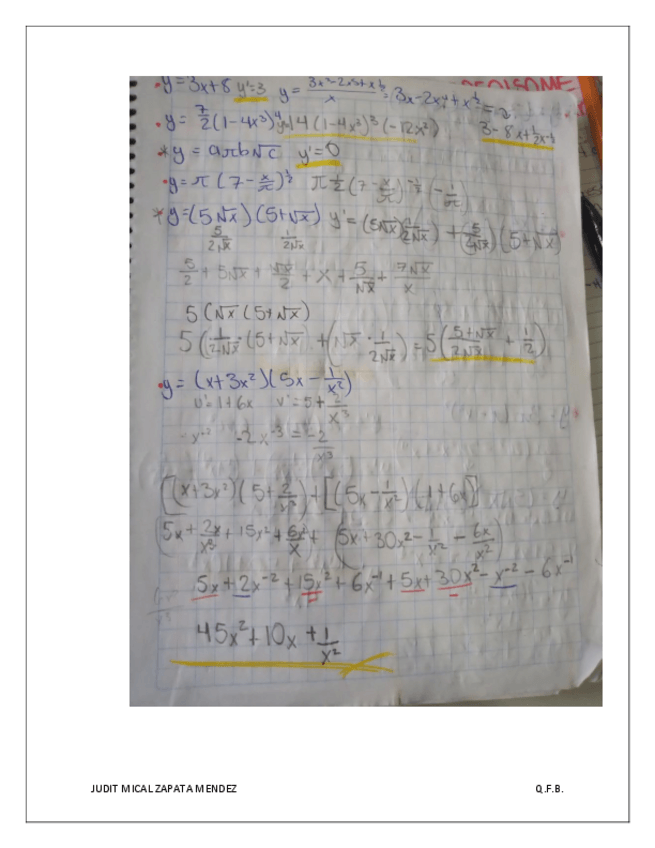 y=3x+8 y'=3 y= 3x²-2x⁵+x^½ / x = 3x-2x⁴+x^½ =
3-8x+½x
y= 7/2 (1-4x³)⁴ 14(1-4x³)³(-12x²)
y= aπb√c y'=0
y=π(7-x/π)^½ π ½(7-x/π)^-½(-1/π)
y=(5√x)(5+√x) y'=(5√x)(1/2√x)+(5/2√x)(5+√x)
5/2√x 1/2√x
5/2+5√x+√x/2+x+5/√x+7√x/x
5(√x(5+√x)
5(1/2√x·(5+√x)+(√x·1/2√x)=5(5+√x/2√x+1/2)
y=(x+3x²)(5x-1/x²)
u'=1+6x v'=5+2/x³
-x⁻² -2x⁻³=-2/x³
[(x+3x²)(5+2/x³)+[(5x-1/x²)(1+6x)]
(5x+2x/x³+15x²+6x²/x+(5x+30x²-1/x²-6x/x²)
5x+2x⁻²+15x²+6x⁻¹+5x+30x²-x⁻²-6x⁻¹
45x²+10x+1/x²
JUDIT MICAL ZAPATA MENDEZ Q.F.B.